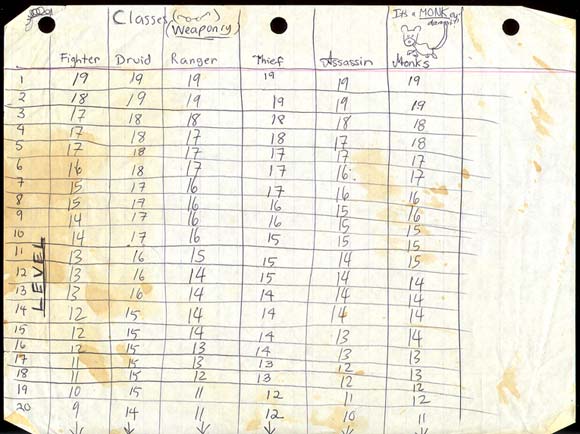 Classes (Weaponry)
It's a MONKey dammit!
Fighter Druid Ranger Thief Assassin Monks
LEVEL
1 19 19 19 19 19 19
2 18 19 19 19 19 19
3 17 18 18 18 18 18
4 17 18 17 18 17 18
5 17 18 17 17 17 16
6 16 18 17 17 16 17
7 15 17 16 17 16 16
8 15 17 16 16 15 16
9 14 17 16 16 15 15
10 14 17 16 15 15 15
11 13 16 15 15 14 15
12 13 16 14 15 14 14
13 13 16 14 14 14 14
14 12 15 14 14 14 14
15 12 15 14 14 13 14
16 12 15 13 14 13 13
17 11 15 13 13 12 13
18 11 15 12 13 12 12
19 10 15 11 12 11 12
20 9 14 11 12 10 11